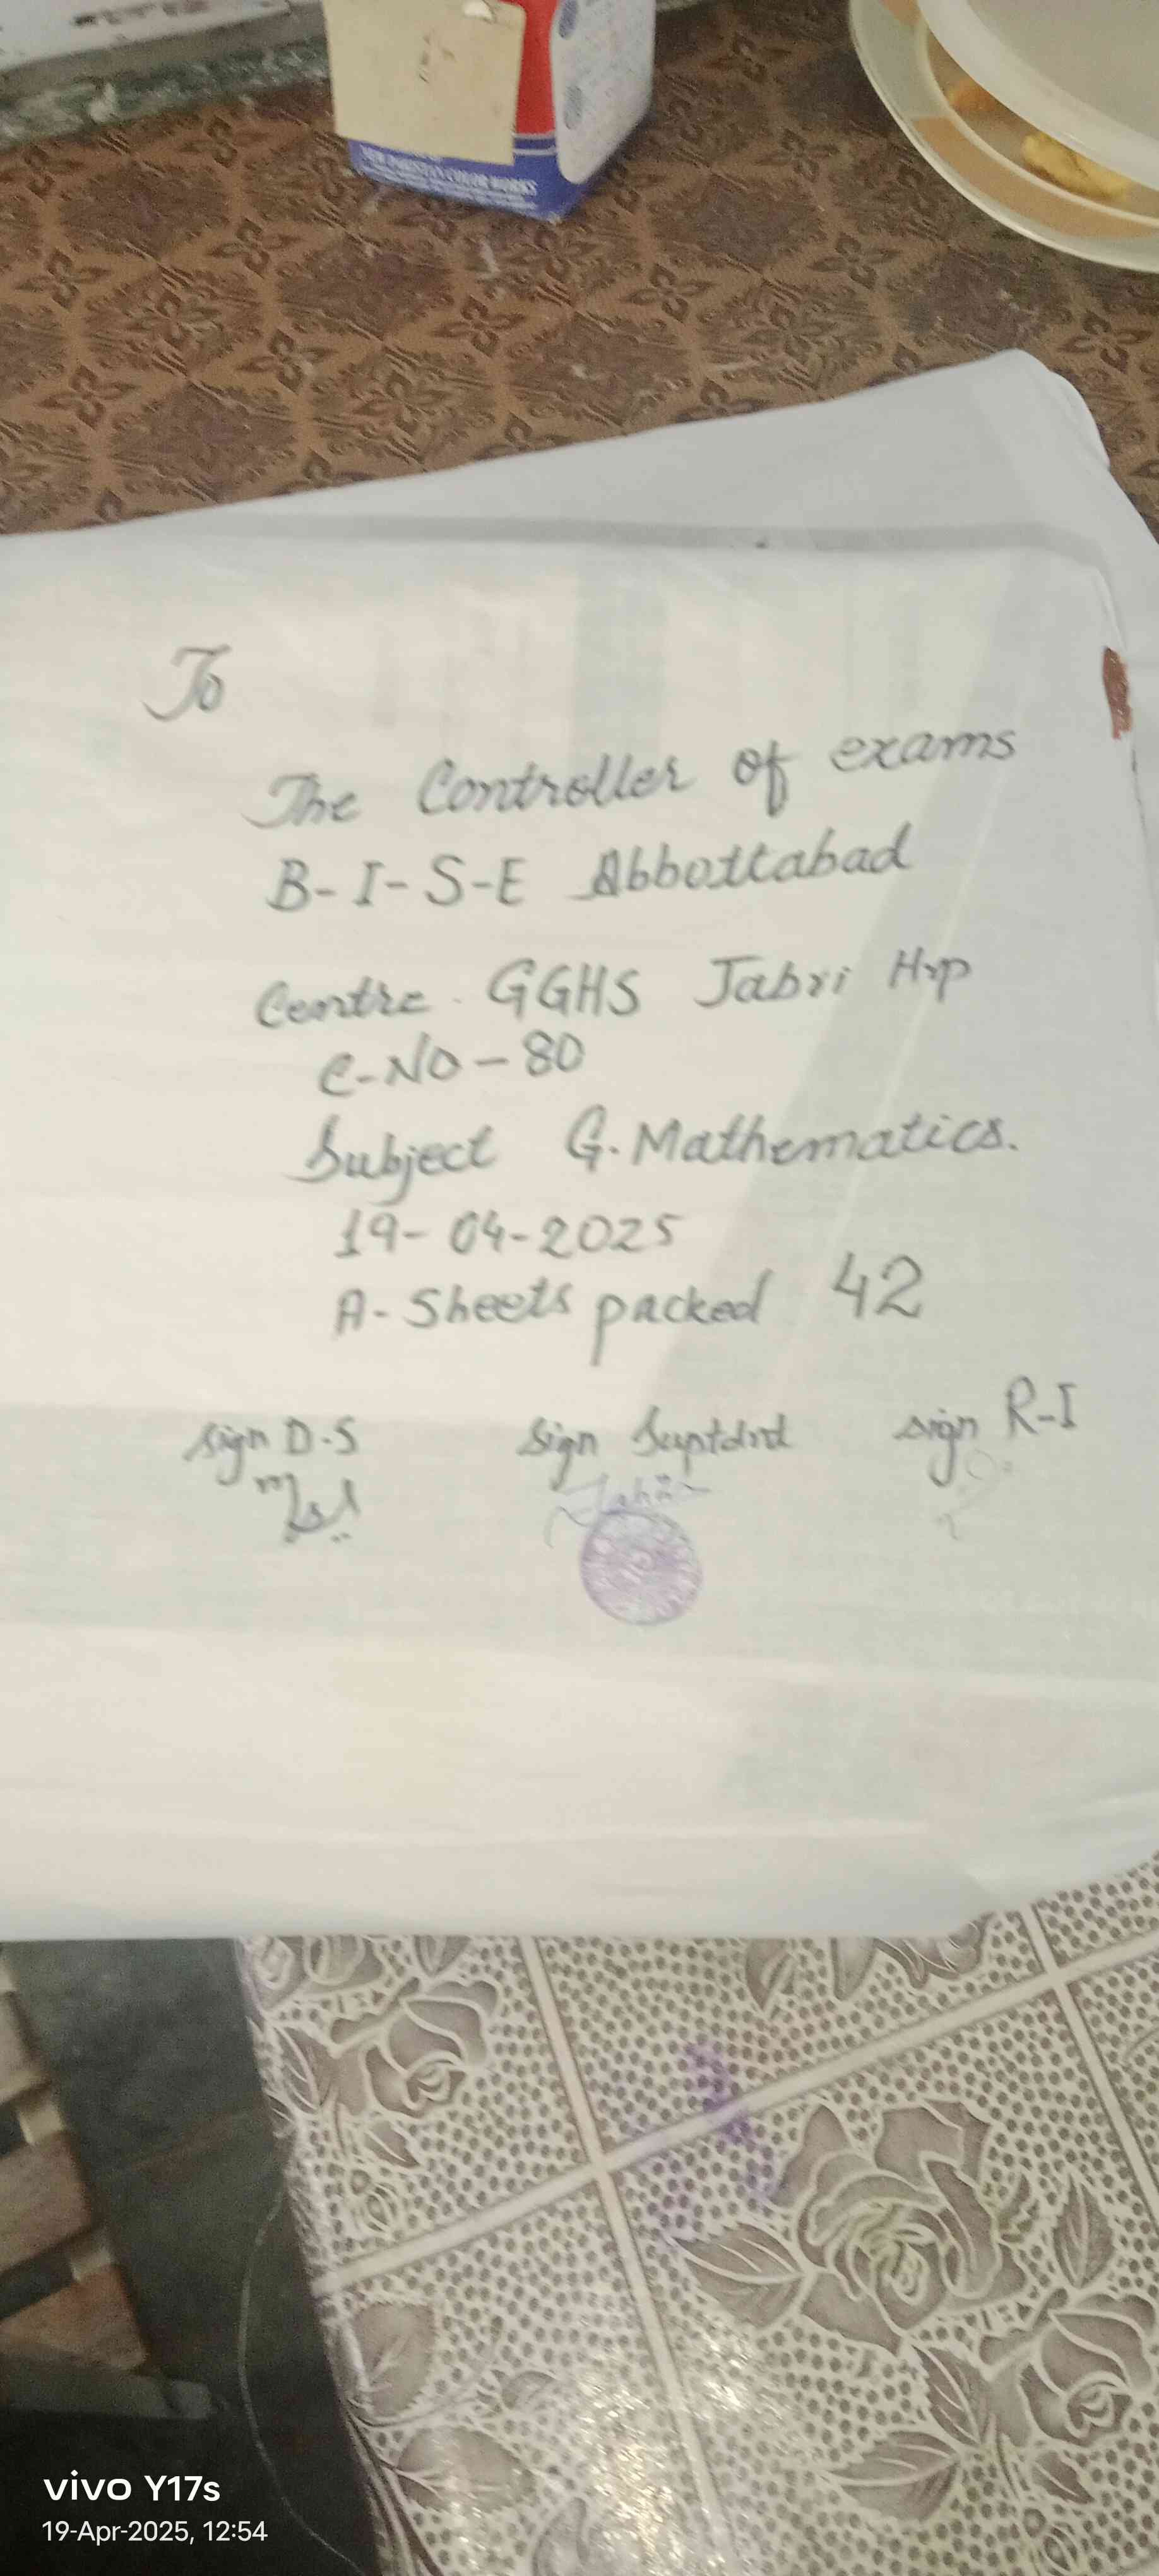 COLOR WORKS
To
The Controller of exams
B-I-S-E Abbottabad
Centre. GGHS Jabri Hrp
C-NO-80
Subject G. Mathematics.
19-04-2025
A-Sheets packed 42
sign D-S sign Suptdnt sign R-I
vivo Y17s
19-Apr-2025, 12:54